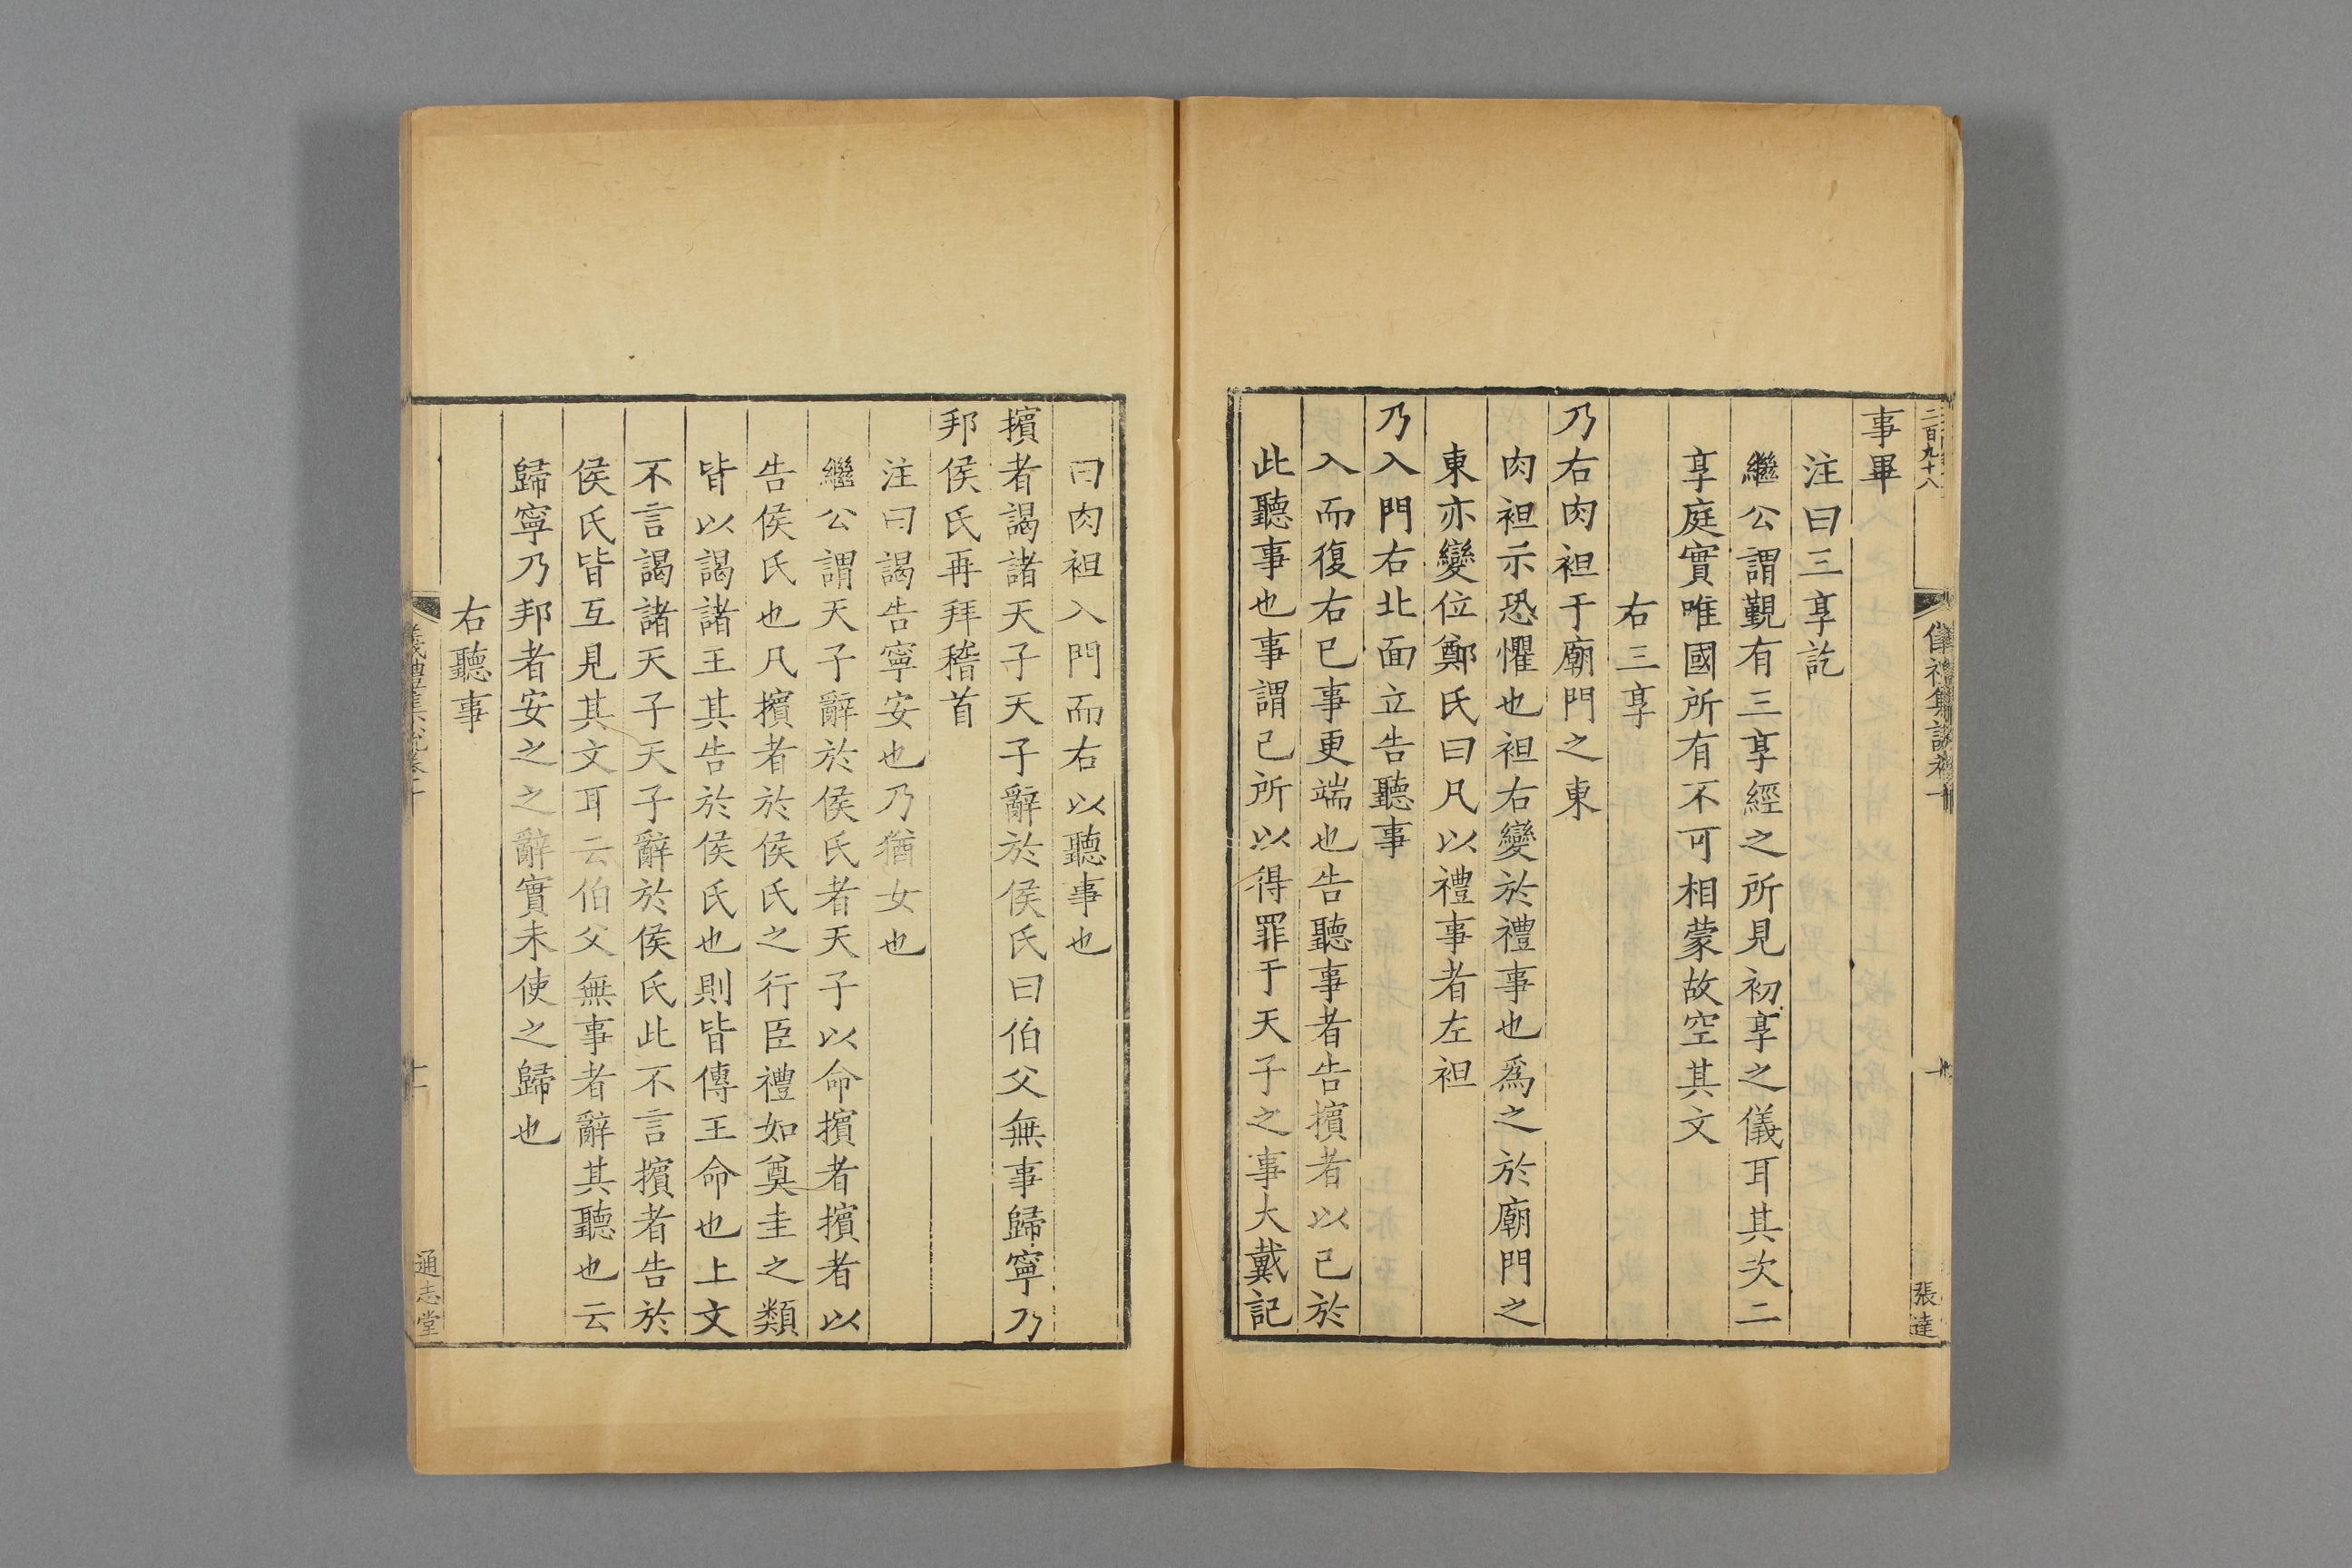 二百九十八
張達
事畢
注曰三享訖
繼公謂覲有三享經之所見初享之儀耳其次二
享庭實唯國所有不可相蒙故空其文
右三享
乃右肉袒于廟門之東
肉袒示恐懼也袒右變於禮事也爲之於廟門之
東亦變位鄭氏曰凡以禮事者左袒
乃入門右北面立告聽事
入而復右已事更端也告聽事者告擯者以己於
此聽事也事謂己所以得罪于天子之事大戴記
曰肉袒入門而右以聽事也
擯者謁諸天子天子辭於侯氏曰伯父無事歸寧乃
邦侯氏再拜稽首
注曰謁告寧安也乃猶女也
繼公謂天子辭於侯氏者天子以命擯者擯者以
告侯氏也凡擯者於侯氏之行臣禮如奠圭之類
皆以謁諸王其告於侯氏也則皆傳王命也上文
不言謁諸天子天子辭於侯氏此不言擯者告於
侯氏皆互見其文耳云伯父無事者辭其聽也云
歸寧乃邦者安之之辭實未使之歸也
右聽事
通志堂